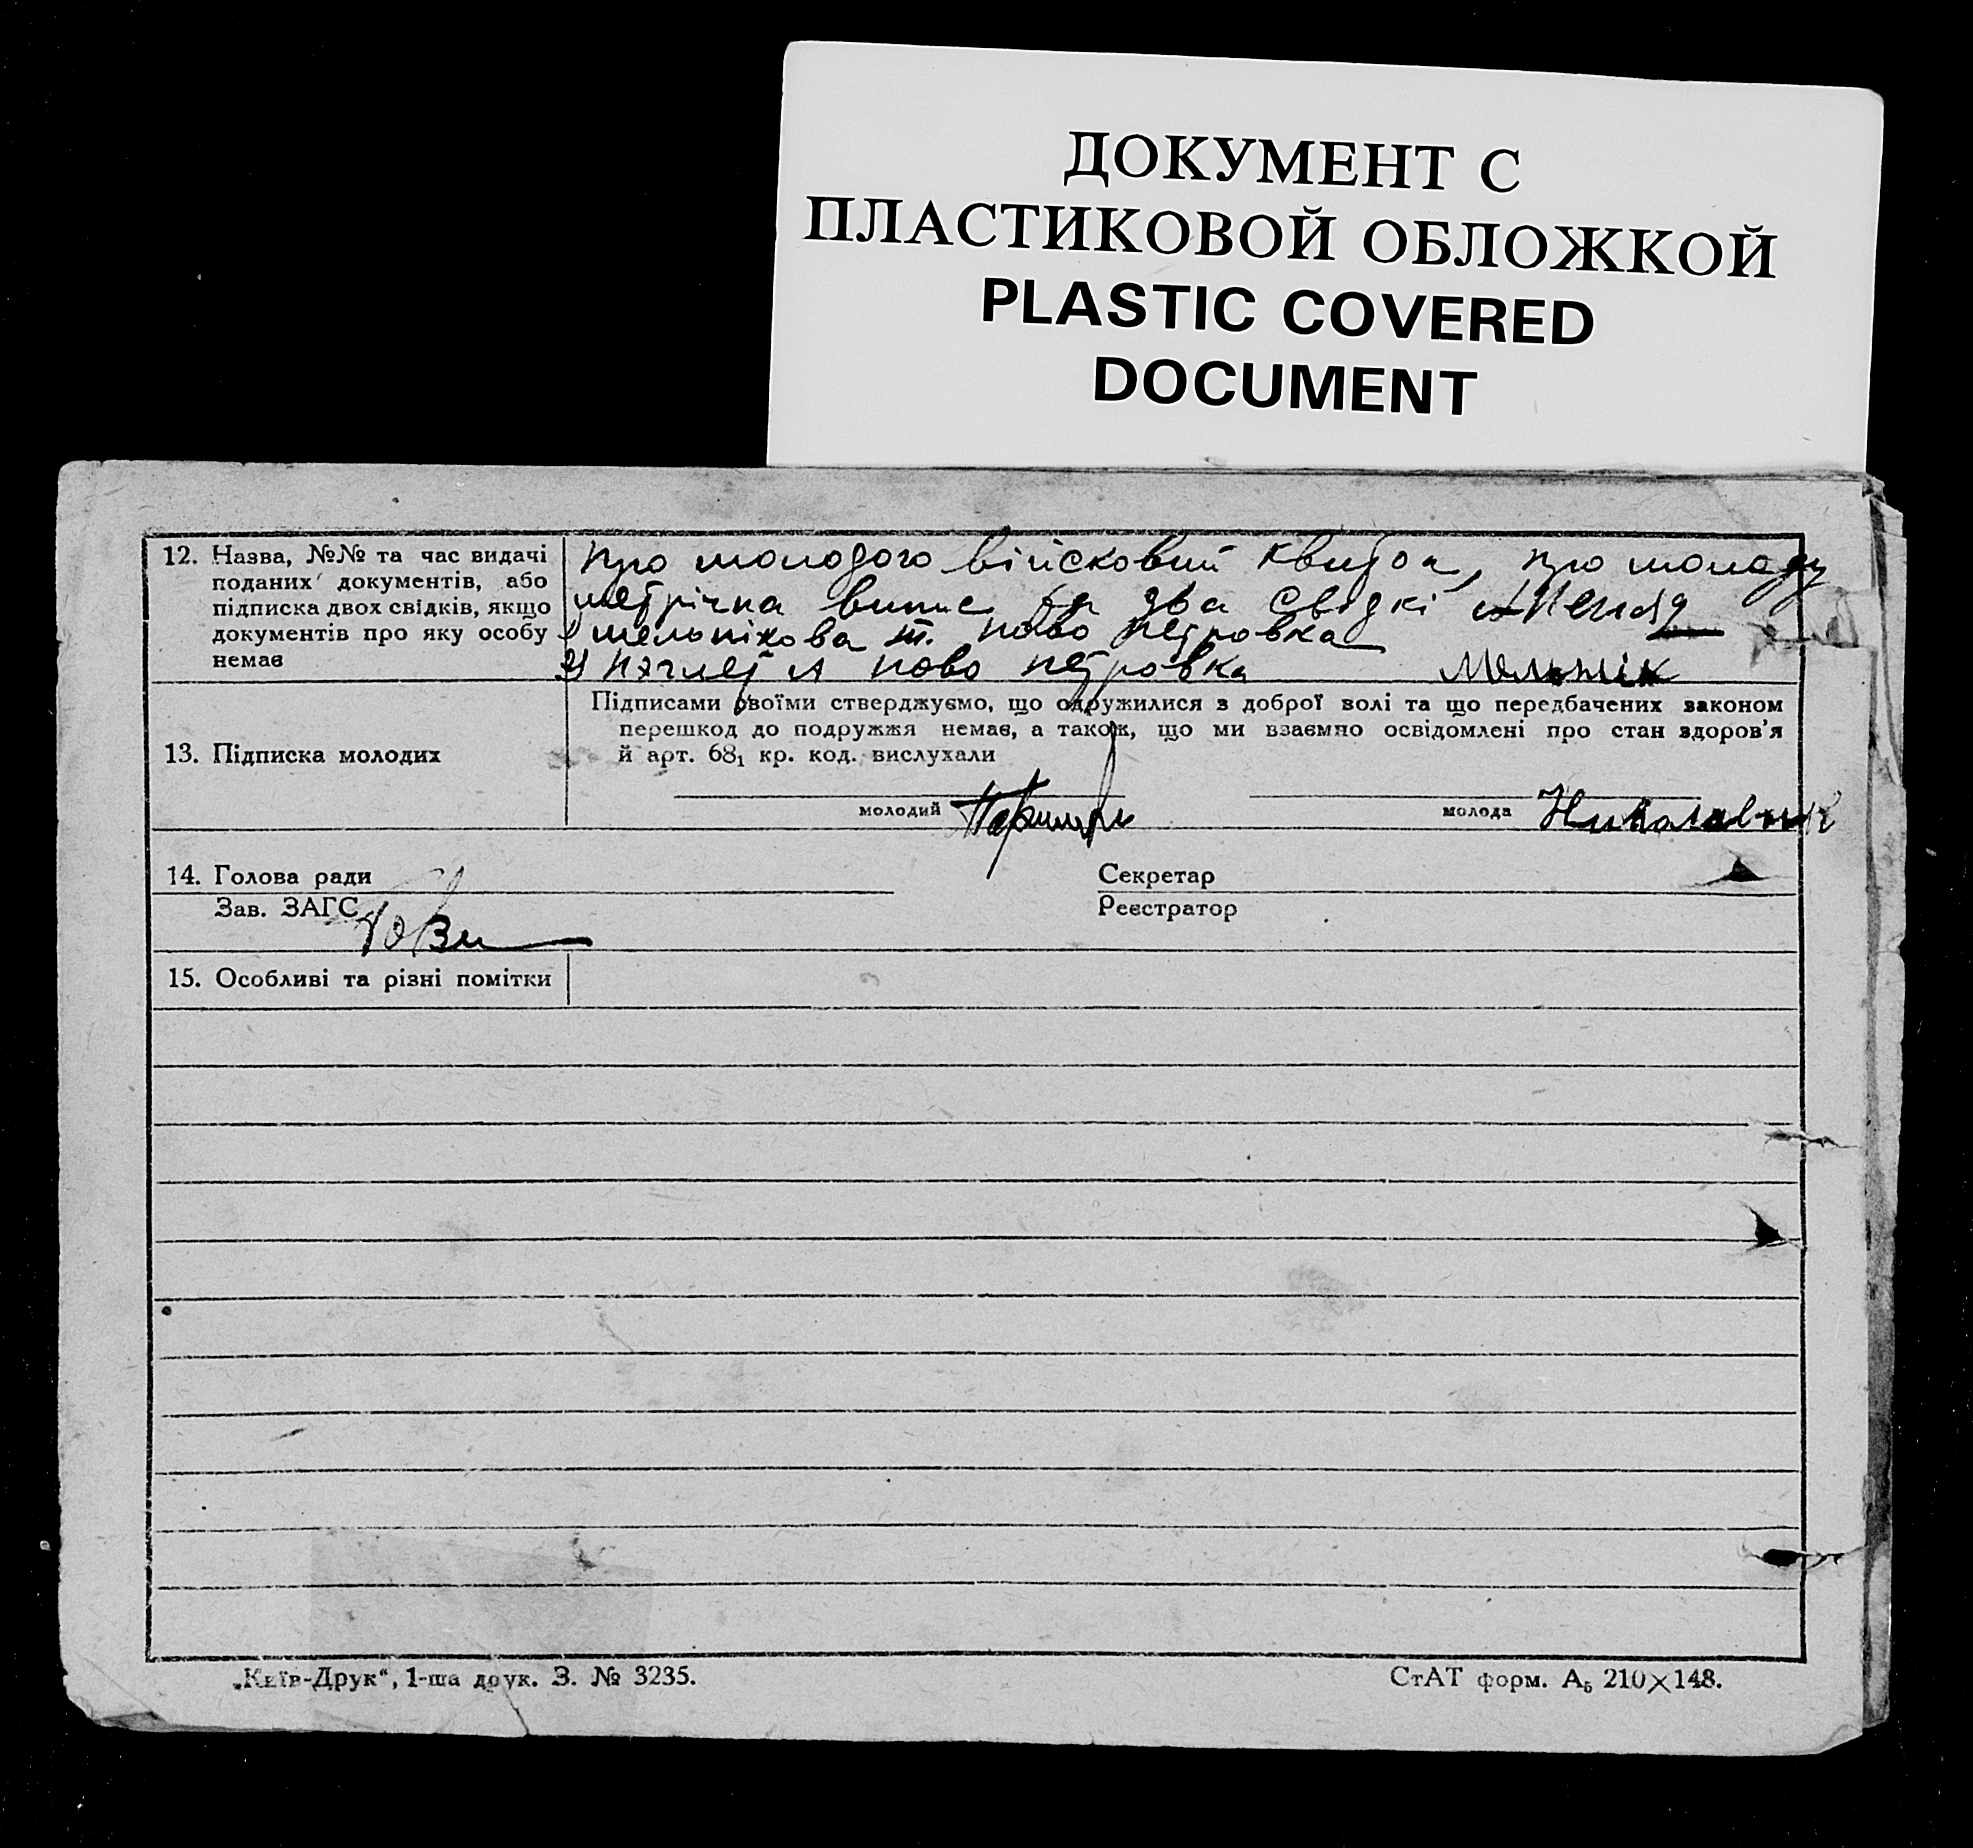 ДОКУМЕНТ С
ПЛАСТИКОВОЙ ОБЛОЖКОЙ
PLASTIC COVERED
DOCUMENT
12. Назва, №№ та час видачі
поданих документів, або
підписка двох свідків, якщо
документів про яку особу
немає
Про молодого війсковий квиток, про молоду
метрічна випис та два свідкі
мельнікова т. ново петровка
ново петровка Мельнік
13. Підписка молодих
Підписами своїми стверджуємо, що одружилися з доброї волі та що передбачених законом
перешкод до подружжя немає, а також, що ми взаємно освідомлені про стан здоров'я
й арт. 68₁ кр. код. вислухали
молодий
молода
14. Голова ради
Секретар
Зав. ЗАГС
Реєстратор
15. Особливі та різні помітки
„Київ-Друк“, 1-ша друк. З. № 3235.
СтАТ форм. А₅ 210×148.